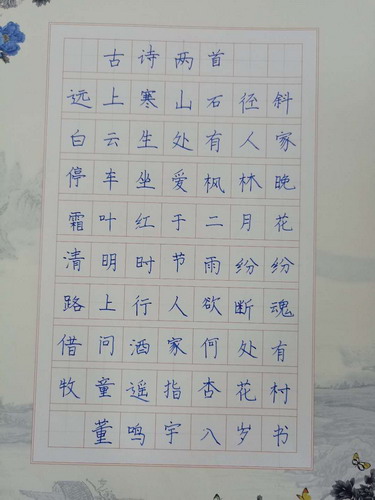 古诗两首
远上寒山石径斜
白云生处有人家
停车坐爱枫林晚
霜叶红于二月花
清明时节雨纷纷
路上行人欲断魂
借问酒家何处有
牧童遥指杏花村
董鸣宇八岁书